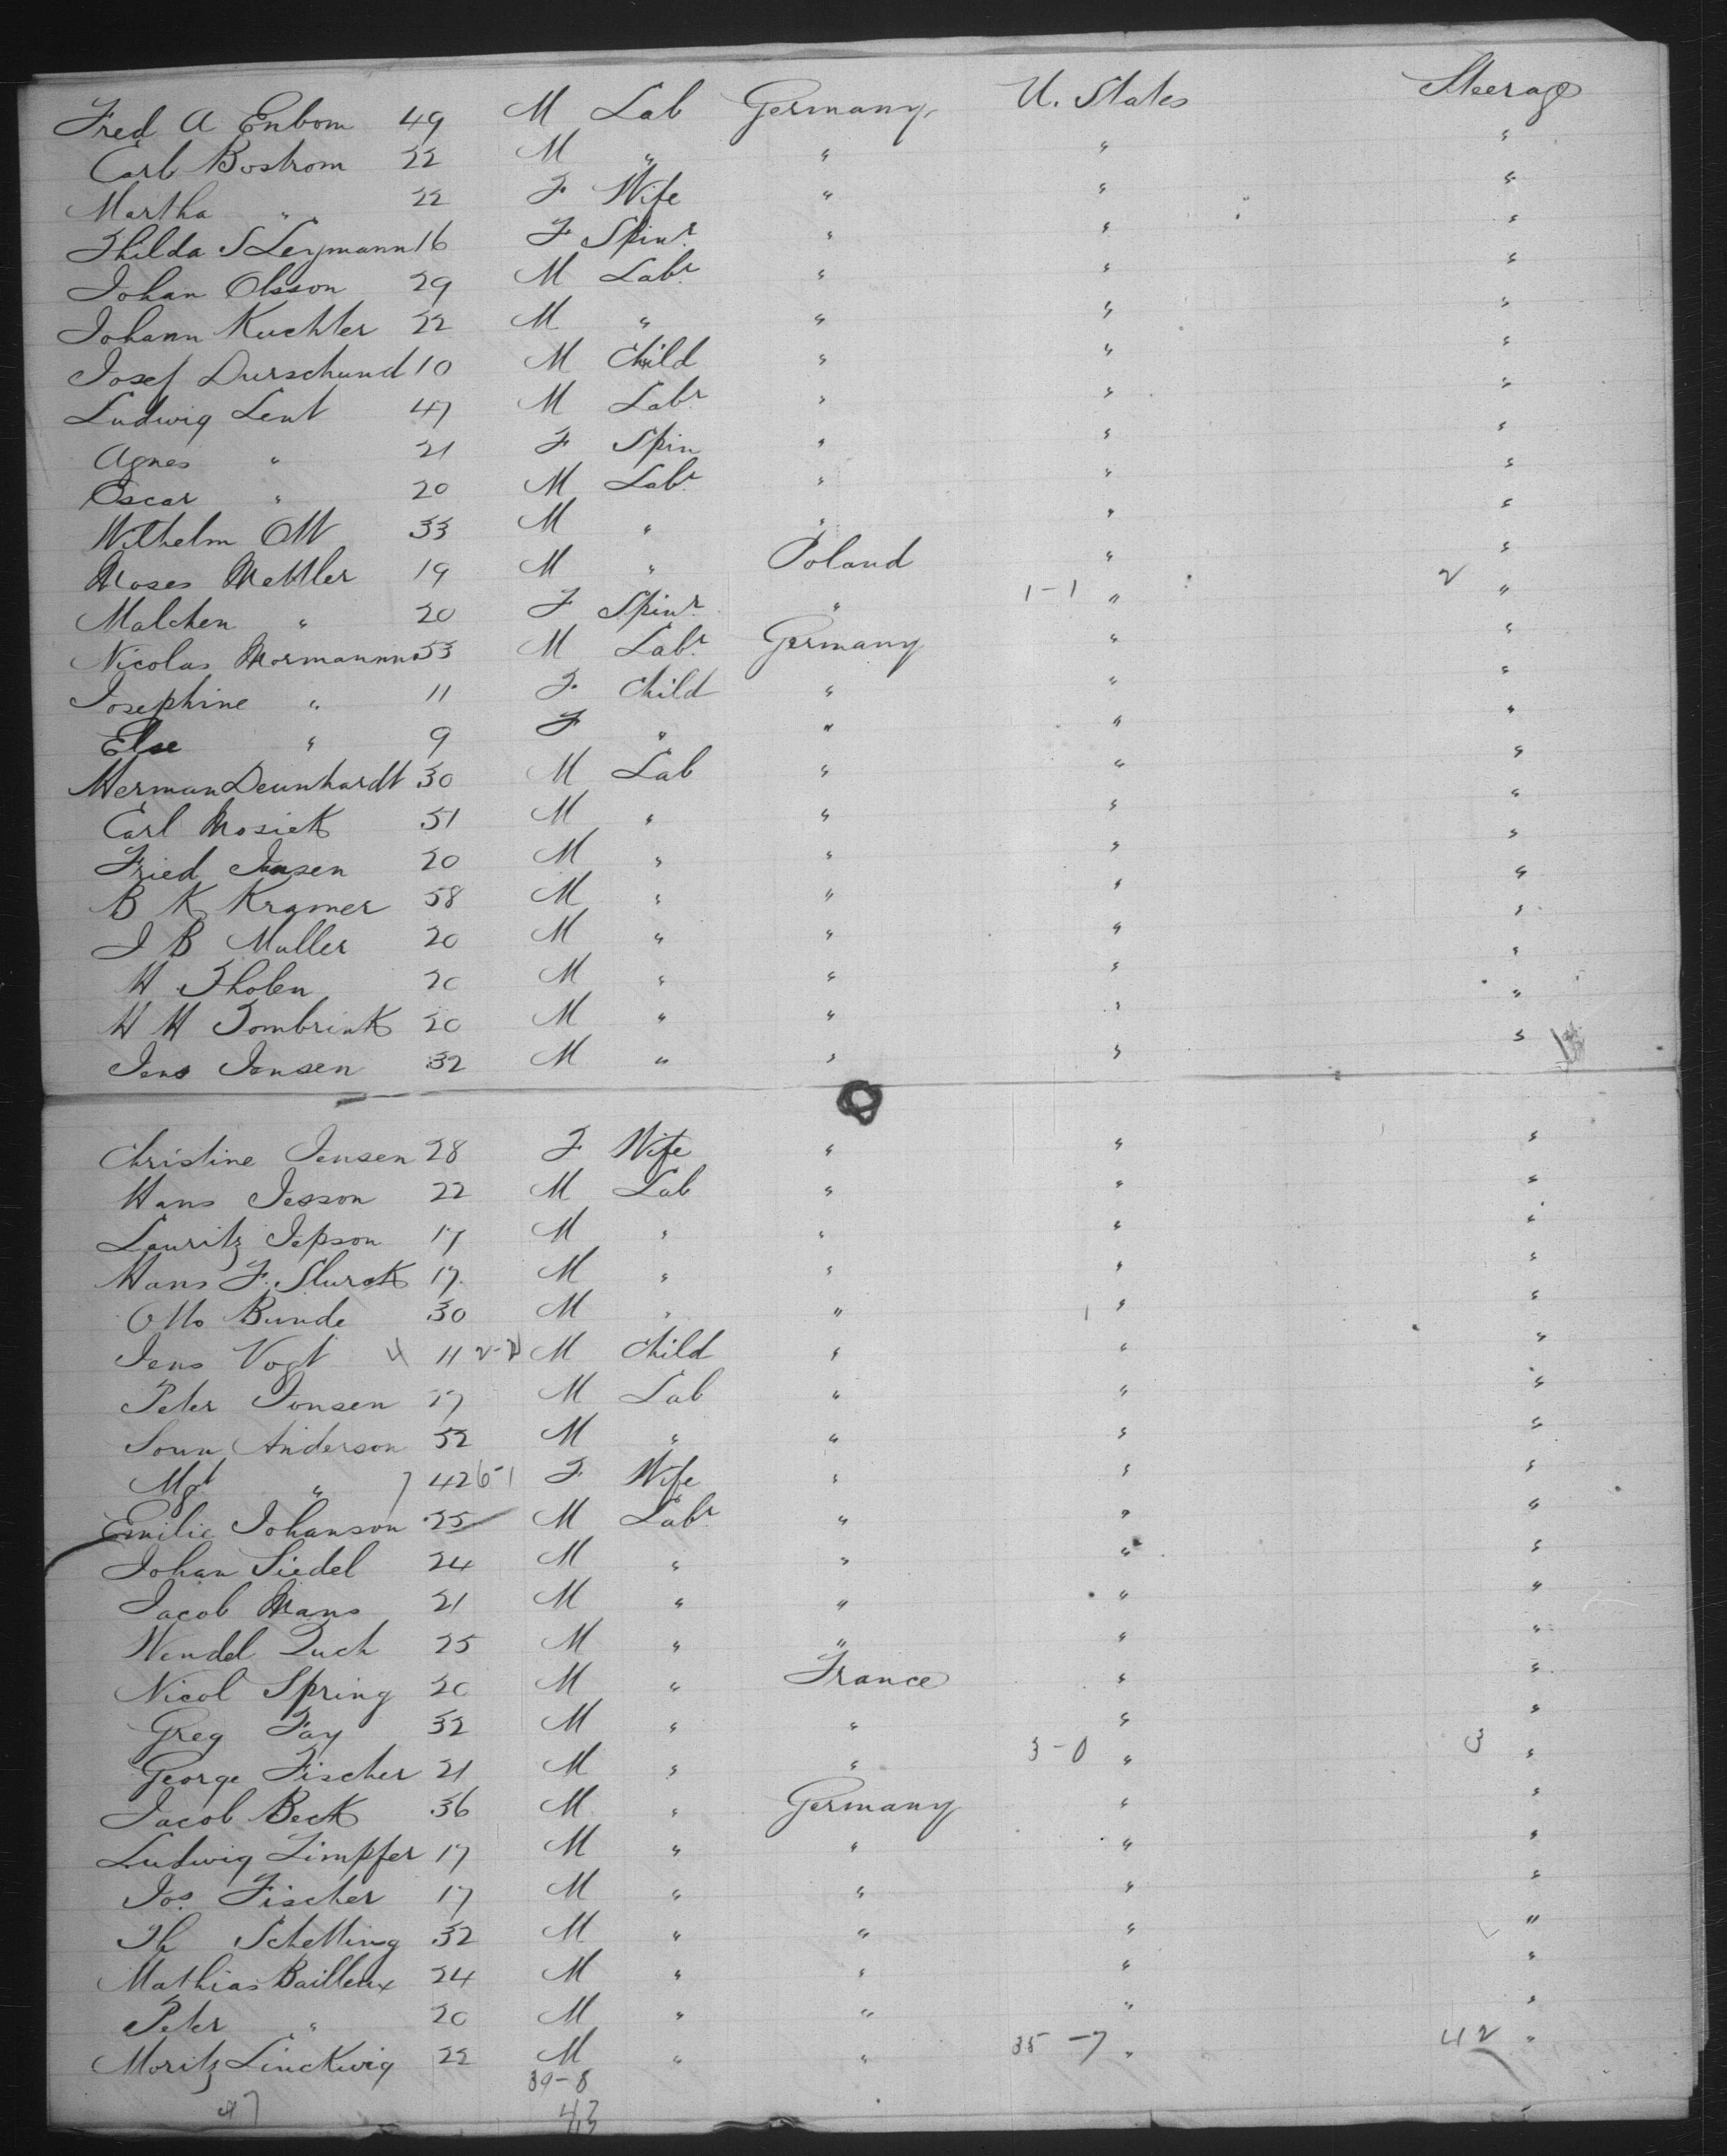 Fred A Enbom 49 M Lab Germany U. States Steerage
Carl Bostrom 22 M " " " "
Martha " 22 F Wife " " "
Thilda S Leymann 16 F Spinr " " "
Johan Olsson 29 M Labr " " "
Johann Kuchler 22 M " " " "
Josef Durschund 10 M Child " " "
Ludwig Lent 47 M Labr " " "
Agnes " 21 F Spin " " "
Oscar " 20 M Labr " " "
Wilhelm Ott 33 M " " " "
Moses Mettler 19 M " Poland " "
Malchen " 20 F Spinr " 1-1 " 2 "
Nicolas Mormannn 53 M Labr Germany " "
Josephine " 11 F Child " " "
Else " 9 F " " " "
Herman Deunhardt 30 M Lab " " "
Carl Mosick 51 M " " " "
Fried Jnsen 20 M " " " "
B K Kramer 58 M " " " "
J B Muller 20 M " " " "
H Tholen 20 M " " " "
H H Tombrink 20 M " " " "
Jens Jensen 32 M " " " "
Christine Jensen 28 F Wife " " "
Hans Jesson 22 M Lab " " "
Lauritz Jepson 17 M " " " "
Hans F. Sturck 17 M " " " "
Otto Bunde 30 M " " " "
Jens Vogt 4 11 M Child " " "
Peter Jonsen 27 M Lab " " "
Anderson 52 M " " " "
Mgt " 7 42 6-1 F Wife " " "
Emilie Johanson 25 M Labr " " "
Johan Siedel 24 M " " " "
Jacob Mans 21 M " " " "
Wendel Quch 25 M " " " "
Nicol Spring 20 M " France " "
Greg Fay 32 M " " " "
George Fischer 21 M " " 3-0 " 3 "
Jacob Beck 36 M " Germany " "
Ludwig Limpfer 17 M " " " "
Jos. Fischer 17 M " " " "
Th Schetting 32 M " " " "
Mathias Bailleux 24 M " " " "
Peter " 20 M " " " "
Moritz Linckwig 22 M " " 35-7 " 42 "
39-8
47